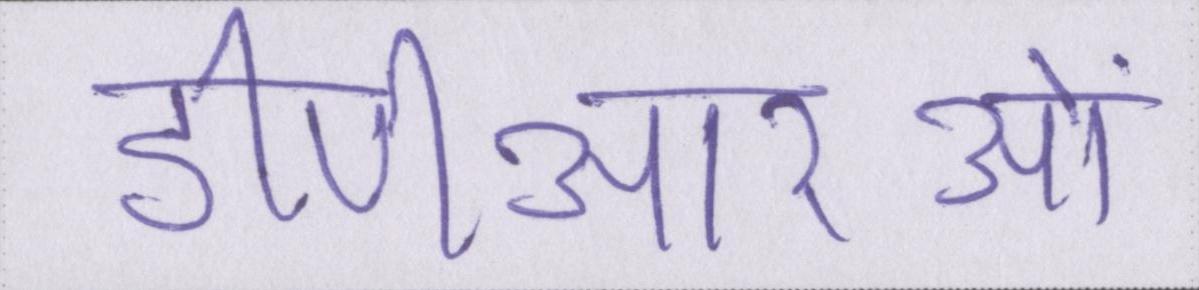 डीपीआरओं